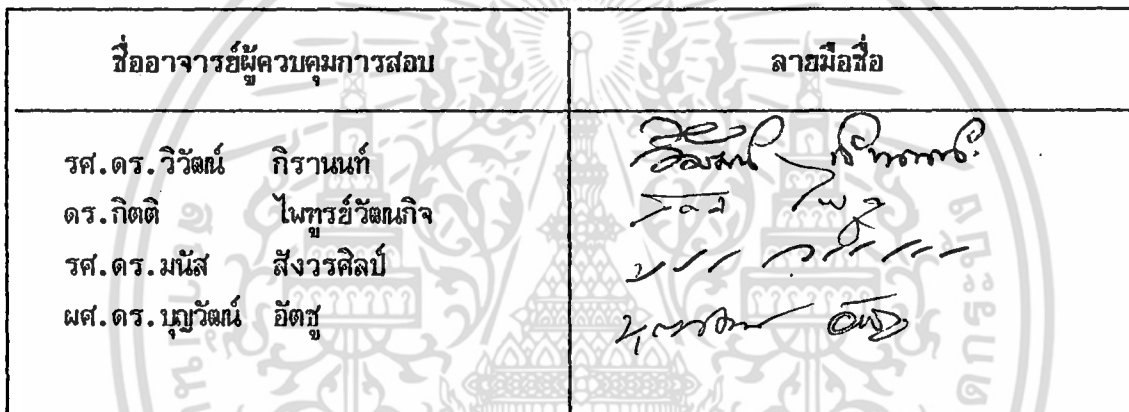 ชื่ออาจารย์ผู้ควบคุมการสอบ ลายมือชื่อ
รศ.ดร.วิวัฒน์ กิรานนท์
ดร.กิตติ ไพฑูรย์วัฒนกิจ
รศ.ดร.มนัส สังวรศิลป์
ผศ.ดร.บุญวัฒน์ อัตชู